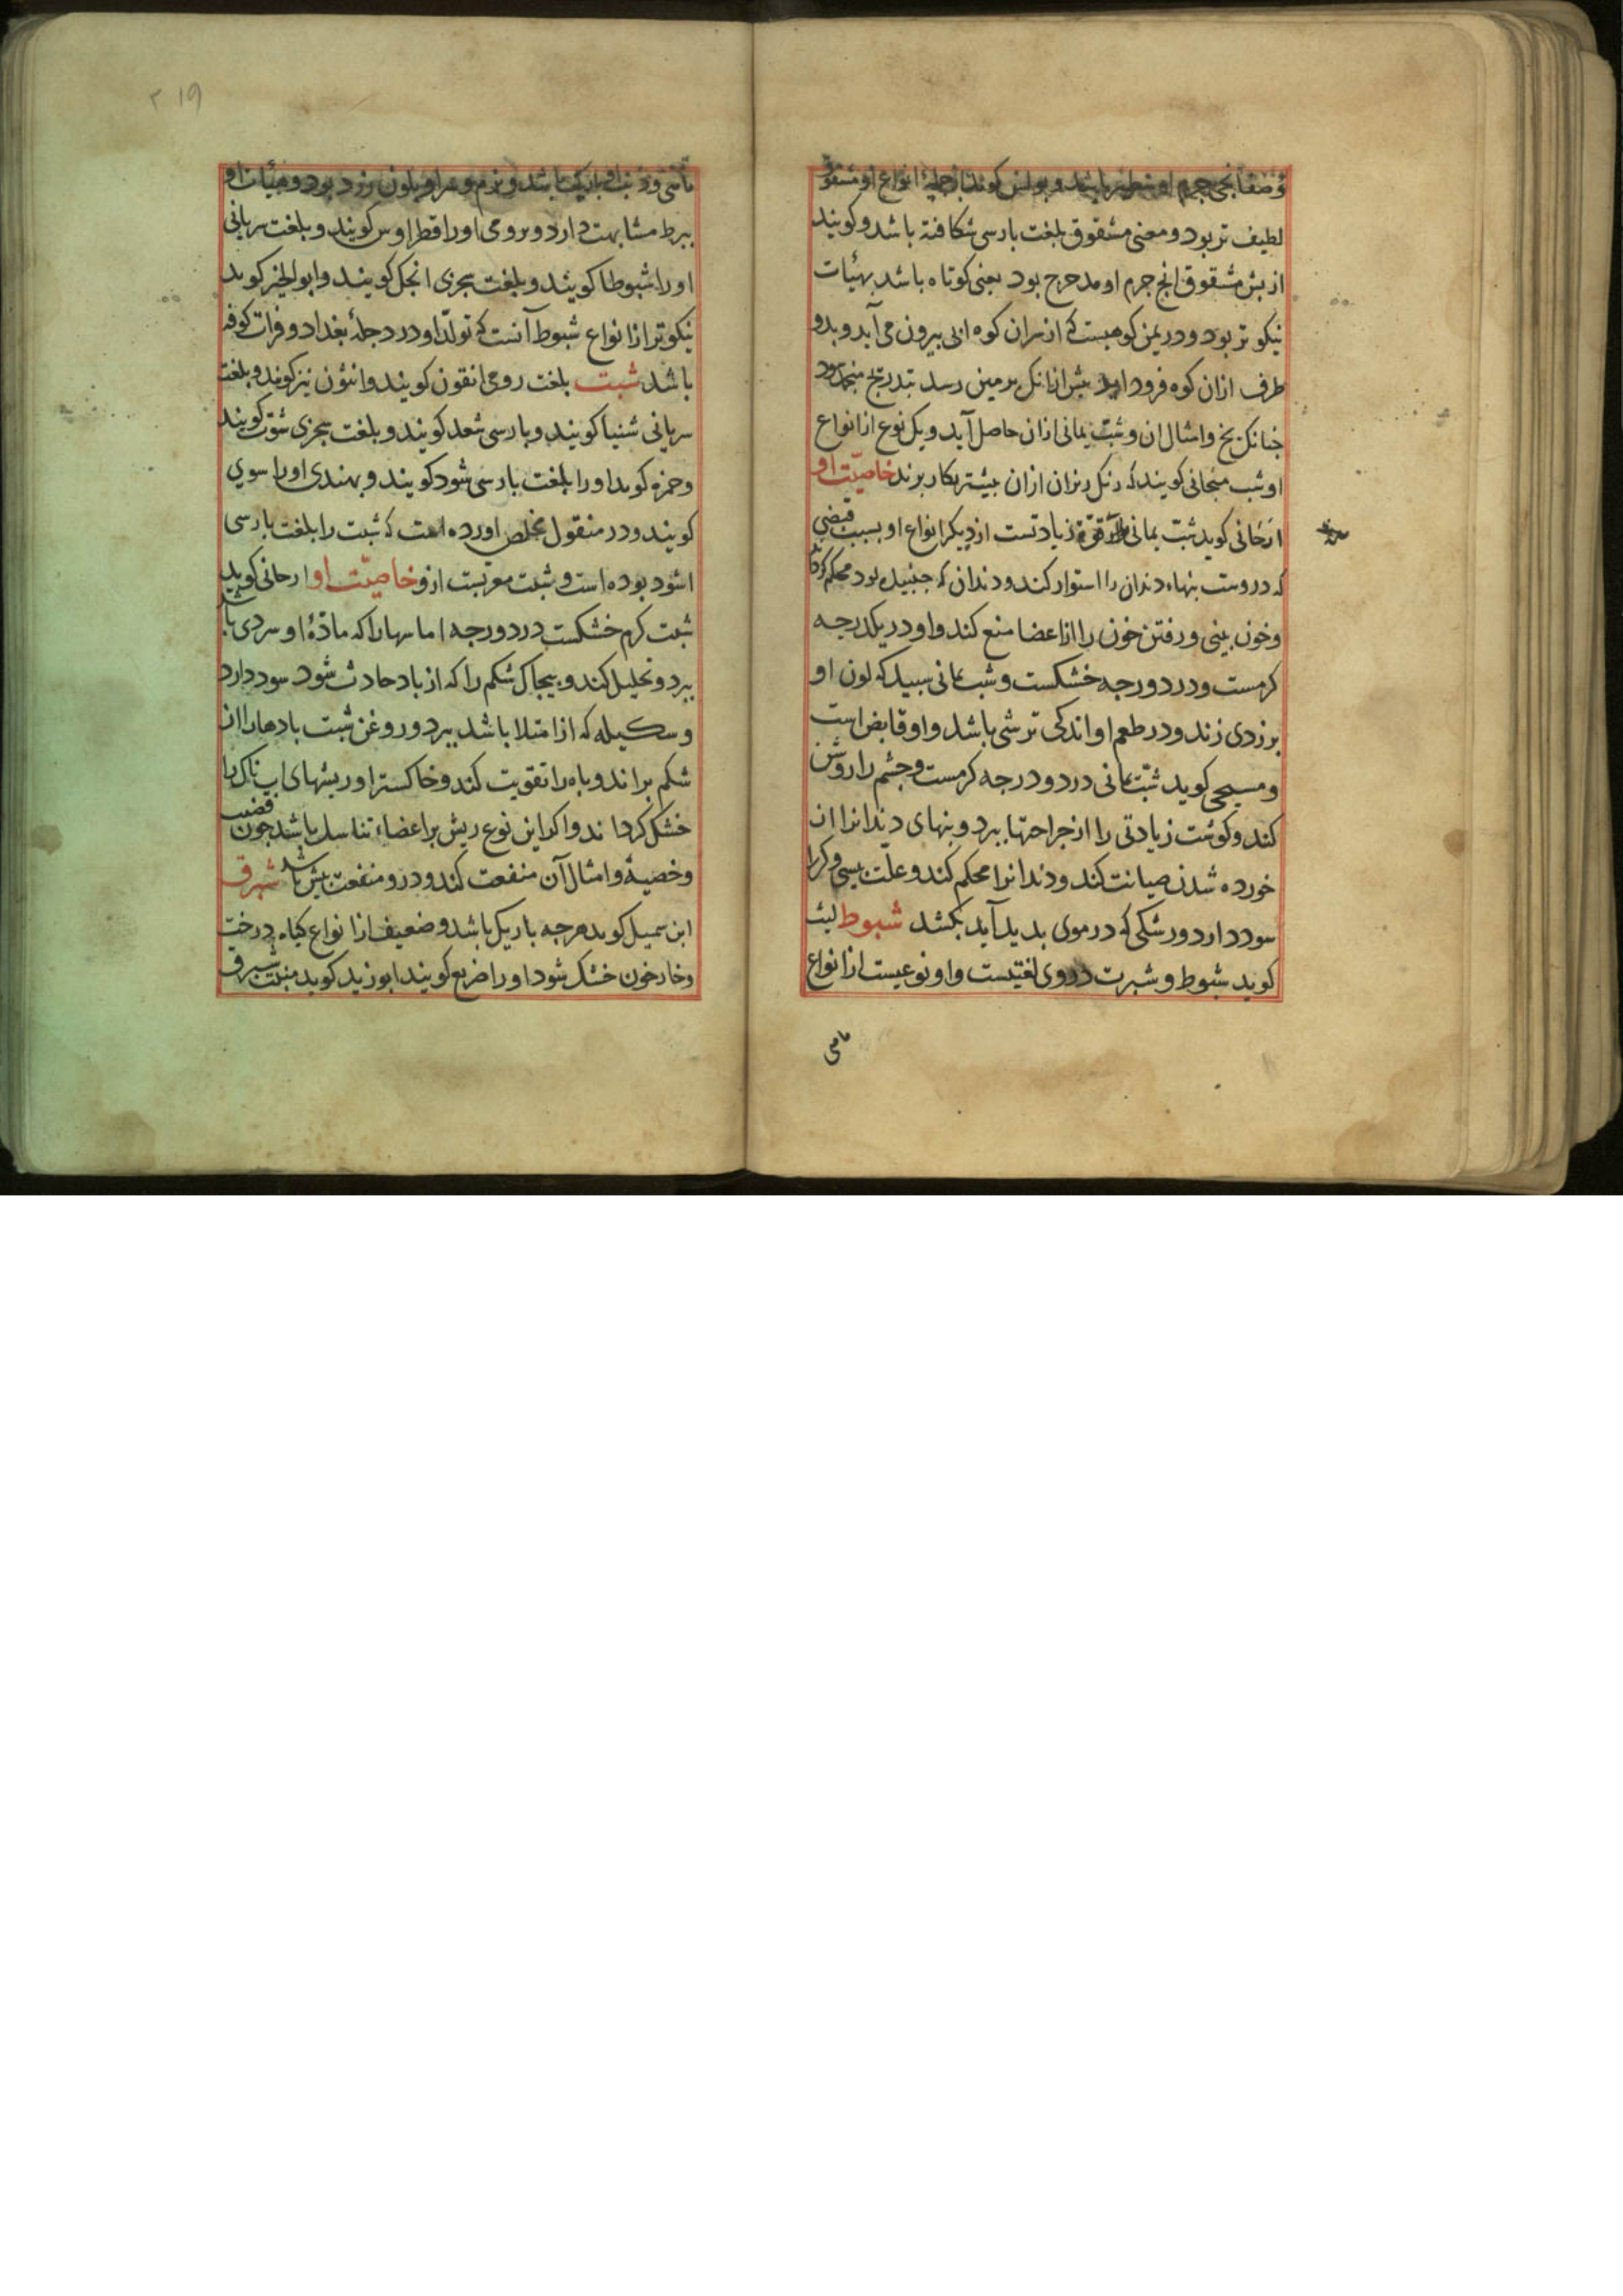 و صفایحی جرم او سطبر باشد و بولس کوید از جملۀ انواع او مشقوق
لطیف تر بود و معنی مشقوق بلغت بارسی شکافته باشد و کویند
از بش مشقوق انج جرم او مدحرج بود یعنی کوتاه باشد بهیٔات
نیکو تر بود و در یمن کوهیست که از سران کوه ابی بیرون می آید و بدو
طرف ازان کوه فرود اید بیش ازانک برمین رسد بتدریج منجمد شود
جنانک یخ و امثال ان و شبّ یمانی ازان حاصل آید و یک نوع از انواع
او شب منجانی کویند که رنک رزان ازان بیشتر بکار برند خاصیّت او
ارّجانی کوید شبّ یمانی را قوّة زیادتست از دیکر انواع او بسبب قبضی
که دروست بنهاء دندان را استوار کند و دندان که جنبیده بود محکم کرداند
و خون بینی و رفتن خون را از اعضا منع کند و او در یک درجه
کرمست و در دو درجه خشکست و شب یمانی سبید که لون او
بزردی زند و در طعم او اندکی ترشی باشد و او قابض است
و مسیحی کوید شبّ یمانی در دو درجه کرمست و جشم را روشن
کند و کوشت زیادتی را از جراحتها ببرد و بنهای دندانرا از
خورده شدن صیانت کند و دندانرا محکم کند و علّت بیسی و کر را
سود دارد و رشکی که در موی بدید آید بکشد شبوط لیث
کوید شبوط و شبرت در وی لغتیست و او نوعیست از انواع
ماهی
۲۱۹
ماهی و ذنب او باریک باشد و نرم و سر او بلون زرد بود و هیٔات او
ببربط مشابهت دارد و برومی او را قطراوس کویند و بلغت سریانی
او را شبوطا کویند و بلغت سجزی انجک کویند و ابوالخیر کوید
نیکوتر از انواع شبوط آنست که تولّد او در دجلۀ بغداد و فرات کوفه
باشد شبت بلغت رومی انقون کویند و انثون نیز کویند و بلغت
سریانی شنیا کویند و بارسی شعد کویند و بلغت سجزی شوّت کویند
و حمزه کوید او را بلغت بارسی شود کویند و بهندی او را سوی
کویند و در منقول مخلص اورده است که شبت را بلغت بارسی
اشود بوده است و شبت معربست ازو خاصیّت او ارجانی کوید
شبت کرم خشکست در دو درجه اماسها را که مادّۀ او سردی باشد
ببرد و تحلیل کند و بیجاک شکم را که از باد حادث شود سود دارد
و سکیله که از امتلا باشد ببرد و روغن شبت بادها را از
شکم براند و باه را تقویت کند و خاکستر او ریشهای اب ناک را
خشک کرداند و اکر این نوع ریش بر اعضاء تناسل باشد جون قضیب
و خصیه و امثال آن منفعت کند و درو منفعت بیش باشد شبرق
ابن سمیل کوید هرجه باریک باشد و ضعیف از انواع کیاه و درخت
و خار خون خشک شود او را ضریع کویند ابوزید کوید منبت شبرق